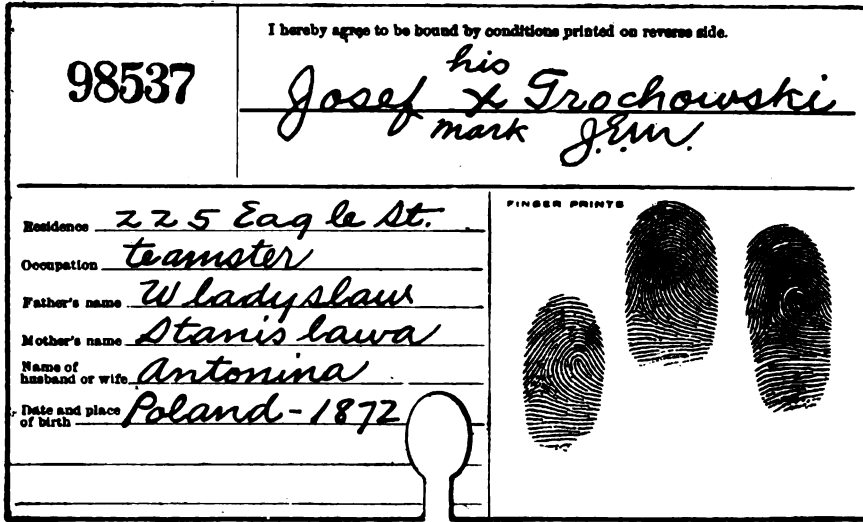 I hereby agree to be bound by conditions printed on reverse side.
98537
his
Josef x Trochowski
mark J.E.W.
Residence 225 Eagle St.
Occupation teamster
Father's name Wladyslaw
Mother's name Stanislawa
Name of
husband or wife Antonina
Date and place
of birth Poland - 1872
FINGER PRINTS